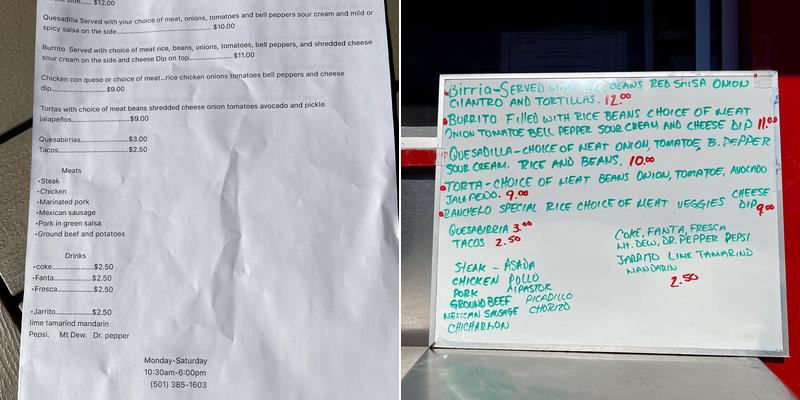 side............ $12.00
Quesadilla Served with your choice of meat, onions, tomatoes and bell peppers sour cream and mild or
spicy salsa on the side........................................ $10.00
Burrito Served with choice of meat rice, beans, onions, tomatoes, bell peppers, and shredded cheese
sour cream on the side and cheese Dip on top.................. $11.00
Chicken con queso or choice of meat...rice chicken onions tomatoes bell peppers and cheese
dip......................$9.00
Tortas with choice of meat beans shredded cheese onion tomatoes avocado and pickle
jalapeños..............................$9.00
Quesabirrias..................$3.00
Tacos..............................$2.50
Meats
•Steak
•Chicken
•Marinated pork
•Mexican sausage
•Pork in green salsa
•Ground beef and potatoes
Drinks
•coke........................$2.50
•Fanta.......................$2.50
•Fresca.....................$2.50
•Jarrito......................$2.50
lime tamarind mandarin
Pepsi. Mt Dew. Dr. pepper
Monday-Saturday
10:30am-6:00pm
(501) 385-1603
Birria-Served BEANS RED SALSA ONION
CILANTRO AND TORTILLAS. 12.00
BURRITO Filled WITH RICE BEANS CHOICE OF MEAT
ONION TOMATOE BELL PEPPER SOUR CREAM AND CHEESE DIP 11.00
QUESADILLA-CHOICE OF MEAT ONION, TOMATOE, B. PEPPER
SOUR CREAM. RICE AND BEANS. 10.00
TORTA-CHOICE OF MEAT BEANS ONION, TOMATOE, AVOCADO
JALAPEÑO. 9.00
RANCHERO SPECIAL RICE CHOICE OF MEAT VEGGIES CHEESE DIP 9.00
QUESABIRRIA 3.00
TACOS 2.50
STEAK - ASADA
CHICKEN POLLO
PORK AlPASTOR
GROUND BEEF PICADILLO
MEXICAN SAUSAGE CHORIZO
CHICHARRON
COKE, FANTA, FRESCA
MT. DEW, DR. PEPPER PEPSI
JARRITO LIME TAMARIND
MANDARIN
2.50